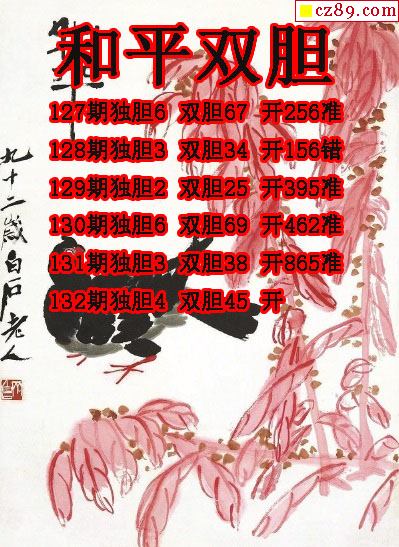 cz89.com
和平双胆
127期独胆6 双胆67 开256准
128期独胆3 双胆34 开156错
129期独胆2 双胆25 开395准
130期独胆6 双胆69 开462准
131期独胆3 双胆38 开865准
132期独胆4 双胆45 开
九十二岁白石老人